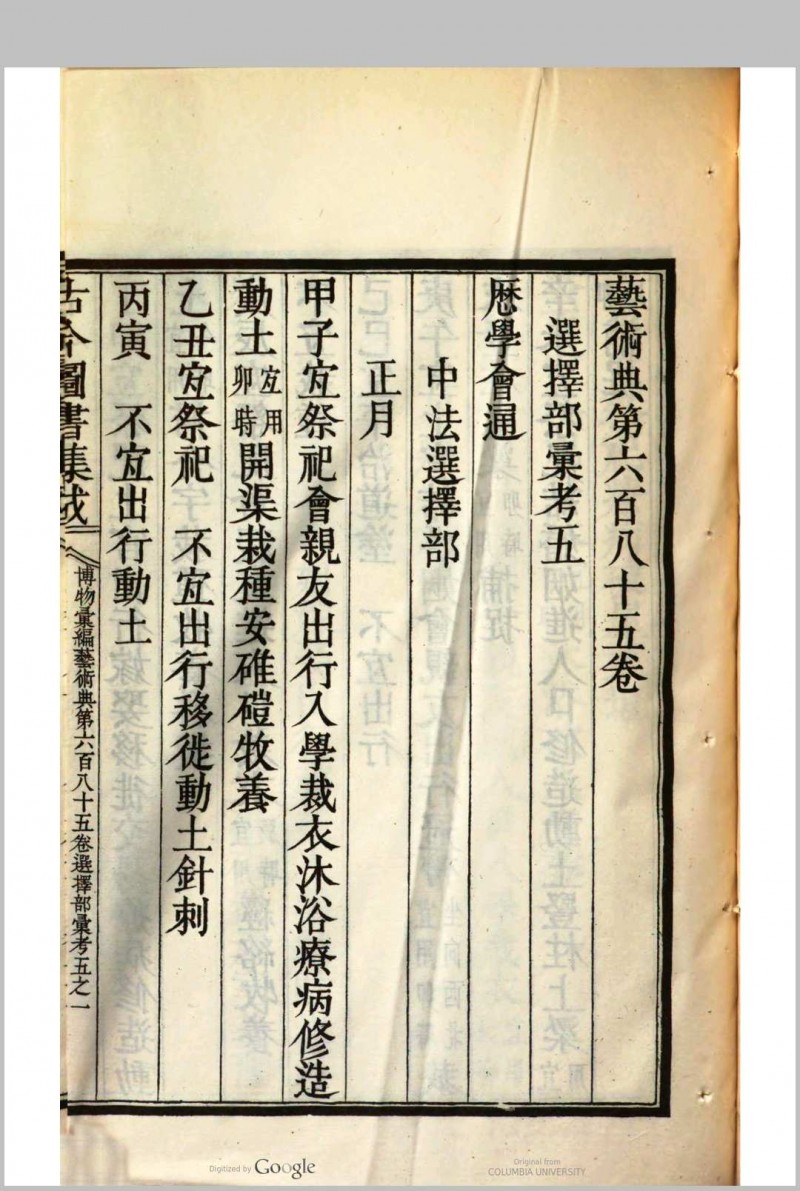 藝術典第六百八十五卷
選擇部彙考五
歷學會通
中法選擇部
正月
甲子宜祭祀會親友出行入學裁衣沐浴療病修造
動土宜用卯時開渠栽種安碓磑牧養
乙丑宜祭祀 不宜出行移徙動土針刺
丙寅 不宜出行動土
古今圖書集成
博物彙編藝術典第六百八十五卷選擇部彙考五之一
Digitized by Google
Original from
COLUMBIA UNIVERSITY